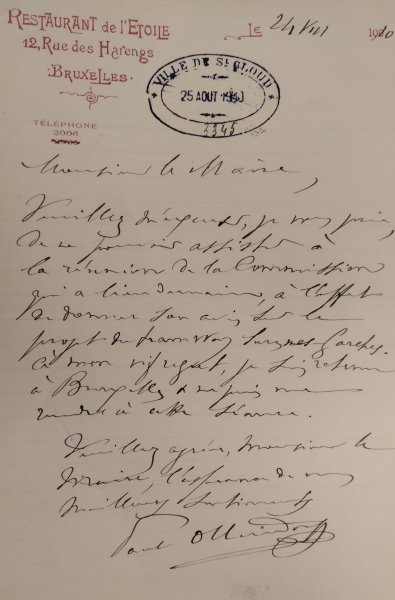 RESTAURANT de L'ETOILE
12, Rue des Harengs
BRUXELLES.
TÉLÉPHONE
2006
Le 24 VIII 1910
VILLE DE St CLOUD
25 AOUT 1910
2345
Monsieur le Maire,
Veuillez m'excuser, je vous prie,
de ne pouvoir assister à
la réunion de la Commission
qui a lieu demain, à l'effet
de donner son avis sur le
projet de tramway Suresnes-Garches.
à mon vif regret, je suis retenu
à Bruxelles & ne puis me
rendre à cette séance.
Veuillez agréer, Monsieur le
Maire, l'expression de mes
meilleurs sentiments
Paul Ollendorff